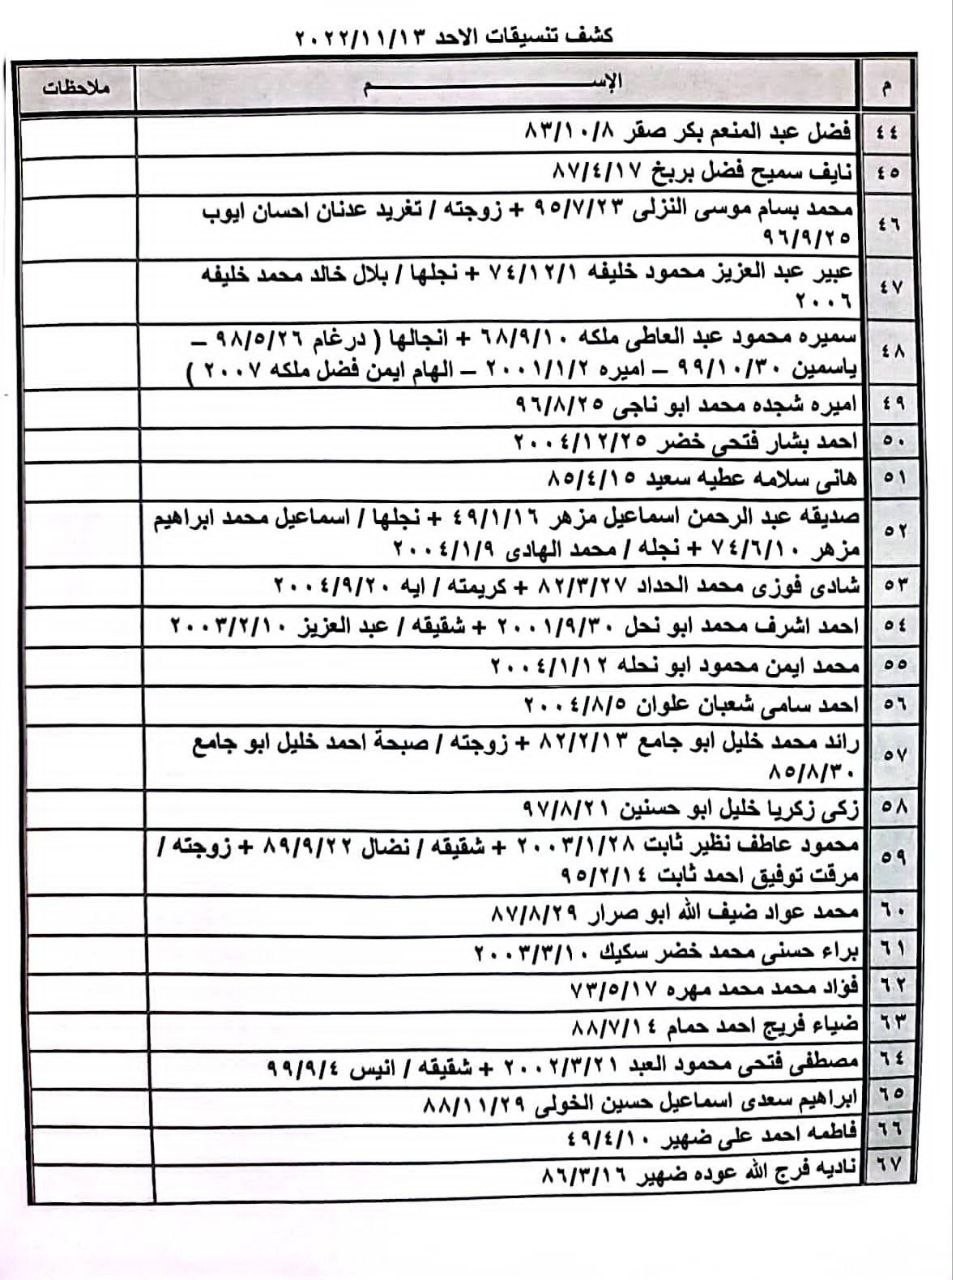 كشف تنسيقات الاحد ٢٠٢٢/١١/١٣
م الإســـــم ملاحظات
٤٤ فضل عبد المنعم بكر صقر ٨٣/١٠/٨
٤٥ نايف سميح فضل بربخ ٨٧/٤/١٧
٤٦ محمد بسام موسى النزلى ٩٥/٧/٢٣ + زوجته / تغريد عدنان احسان ايوب
٩٦/٩/٢٥
٤٧ عبير عبد العزيز محمود خليفه ٧٤/١٢/١ + نجلها / بلال خالد محمد خليفه
٢٠٠٦
٤٨ سميره محمود عبد العاطى ملكه ٦٨/٩/١٠ + انجالها ( درغام ٩٨/٥/٢٦ –
ياسمين ٩٩/١٠/٣٠ – اميره ٢٠٠١/١/٢ – الهام ايمن فضل ملكه ٢٠٠٧ )
٤٩ اميره شجده محمد ابو ناجى ٩٦/٨/٢٥
٥٠ احمد بشار فتحى خضر ٢٠٠٤/١٢/٢٥
٥١ هانى سلامه عطيه سعيد ٨٥/٤/١٥
٥٢ صديقه عبد الرحمن اسماعيل مزهر ٤٩/١/١٦ + نجلها / اسماعيل محمد ابراهيم
مزهر ٧٤/٦/١٠ + نجله / محمد الهادى ٢٠٠٤/١/٩
٥٣ شادى فوزى محمد الحداد ٨٢/٣/٢٧ + كريمته / ايه ٢٠٠٤/٩/٢٠
٥٤ احمد اشرف محمد ابو نحل ٢٠٠١/٩/٣٠ + شقيقه / عبد العزيز ٢٠٠٣/٢/١٠
٥٥ محمد ايمن محمود ابو نحله ٢٠٠٤/١/١٢
٥٦ احمد سامى شعبان علوان ٢٠٠٤/٨/٥
٥٧ رائد محمد خليل ابو جامع ٨٢/٢/١٣ + زوجته / صبحة احمد خليل ابو جامع
٨٥/٨/٣٠
٥٨ زكى زكريا خليل ابو حسنين ٩٧/٨/٢١
٥٩ محمود عاطف نظير ثابت ٢٠٠٣/١/٢٨ + شقيقه / نضال ٨٩/٩/٢٢ + زوجته /
مرقت توفيق احمد ثابت ٩٥/٢/١٤
٦٠ محمد عواد ضيف الله ابو صرار ٨٧/٨/٢٩
٦١ براء حسنى محمد خضر سكيك ٢٠٠٣/٣/١٠
٦٢ فؤاد محمد محمد مهره ٧٣/٥/١٧
٦٣ ضياء فريج احمد حمام ٨٨/٧/١٤
٦٤ مصطفى فتحى محمود العبد ٢٠٠٢/٣/٢١ + شقيقه / انيس ٩٩/٩/٤
٦٥ ابراهيم سعدى اسماعيل حسين الخولى ٨٨/١١/٢٩
٦٦ فاطمه احمد على ضهير ٤٩/٤/١٠
٦٧ ناديه فرج الله عوده ضهير ٨٦/٣/١٦